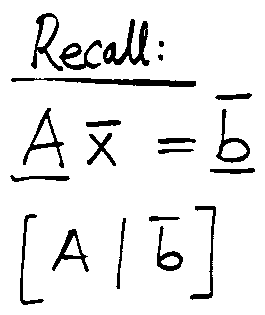 Recall:
A x̄ = b̄
[A | b̄]